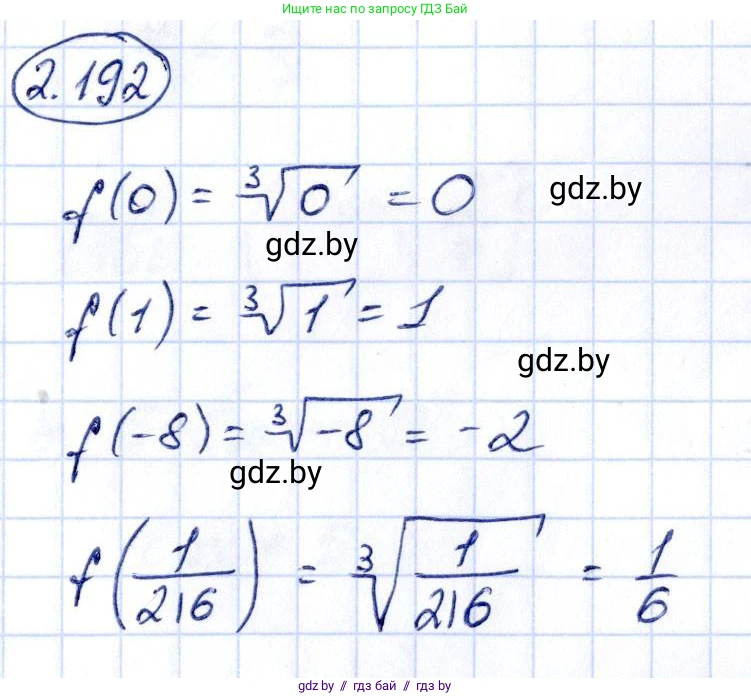 Ищите нас по запросу ГДЗ Бай
2.192
f(0) = ∛0 = 0
gdz.by
gdz.by
f(1) = ∛1 = 1
gdz.by
f(-8) = ∛-8 = -2
gdz.by
f(1/216) = ∛(1/216) = 1/6
gdz.by // гдз бай // gdz.by